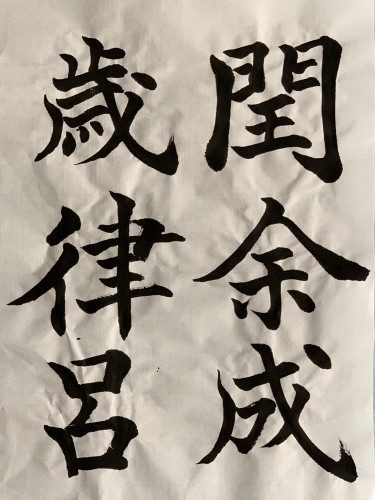 閏余成
歳律呂